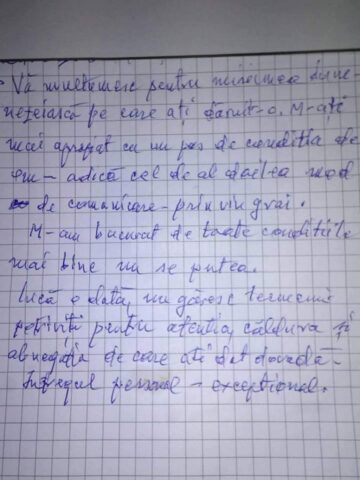 Vă mulțumesc pentru minunea dum-
nezeiască pe care ați dăruit-o. M-ați
mai apropiat cu un pas de condiția de
om - adică cel de al doilea mod
de comunicare - prin viu grai.
M-am bucurat de toate condițiile
mai bine nu se putea.
Încă o dată, nu găsesc termenii
potriviți pentru atenția, căldura și
abnegația de care ați dat dovadă.
Întregul personal - excepțional.